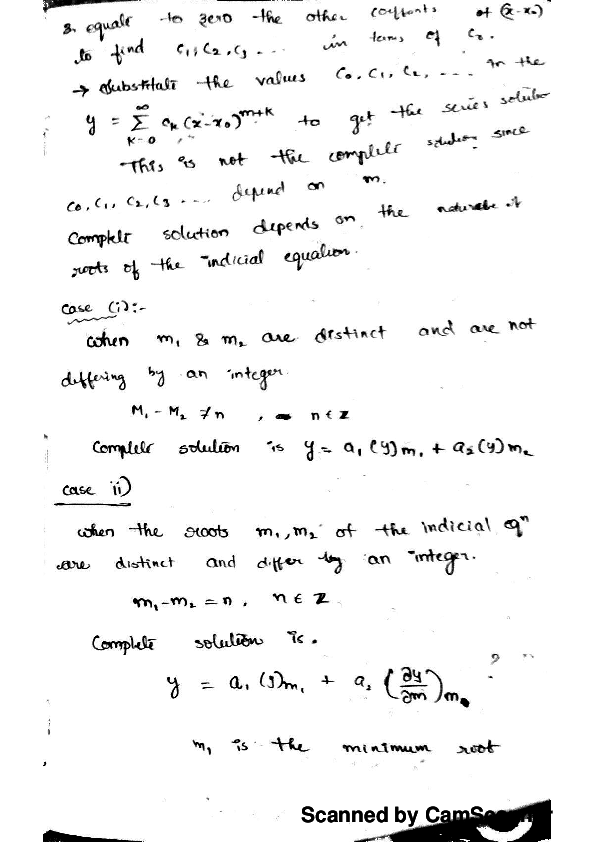 3. equate to zero the other coeffonts of (x-x₀)
to find c₁, c₂, c₃ .... in terms of c₀.
→ Substitute the values c₀, c₁, c₂, .... in the
y = Σ_{K=0}^{∞} cₖ (x-x₀)^{m+k} to get the series solution
This is not the complete solution since
c₀, c₁, c₂, c₃ .... depend on m.
Complete solution depends on the nature of
roots of the indicial equation.
case (i):-
when m₁ & m₂ are distinct and are not
differing by an integer.
M₁ - M₂ ≠ n , n ∈ Z
Complete solution is y = a₁ (y)m₁ + a₂ (y)m₂
case ii)
when the roots m₁, m₂ of the indicial eqⁿ
are distinct and differ by an integer.
m₁-m₂ = n, n ∈ Z
Complete solution is.
y = a₁ (y)m₁ + a₂ (∂y/∂m)m
m₁ is the minimum root
Scanned by CamScanner